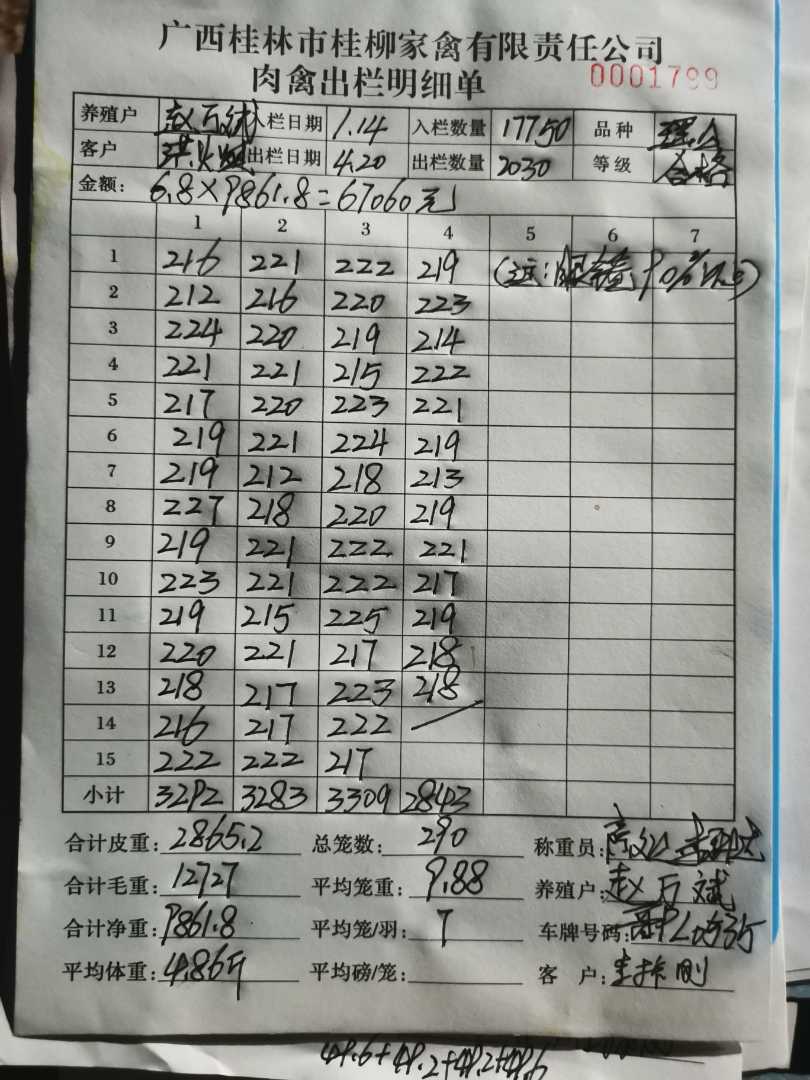 广西桂林市桂柳家禽有限责任公司
肉禽出栏明细单 0001799
养殖户 赵万斌 入栏日期 1.14 入栏数量 17750 品种
客户 出栏日期 4.20 出栏数量 2030 等级 合格
金额: 6.8×9861.8=67060元
1 2 3 4 5 6 7
1 216 221 222 219
2 212 216 220 223
3 224 220 219 214
4 221 221 215 222
5 217 220 223 221
6 219 221 224 219
7 219 212 218 213
8 227 218 220 219
9 219 221 222 221
10 223 221 222 217
11 219 215 225 219
12 220 221 217 218
13 218 217 223 218
14 216 217 222
15 222 222 217
小计 3292 3283 3309 2843
合计皮重: 2865.2 总笼数: 290 称重员:
合计毛重: 12727 平均笼重: 9.88 养殖户: 赵万斌
合计净重: 9861.8 平均笼/羽: 7 车牌号码:
平均体重: 4.86斤 平均磅/笼: 客 户:
49.6+49.2+49.2+49.6